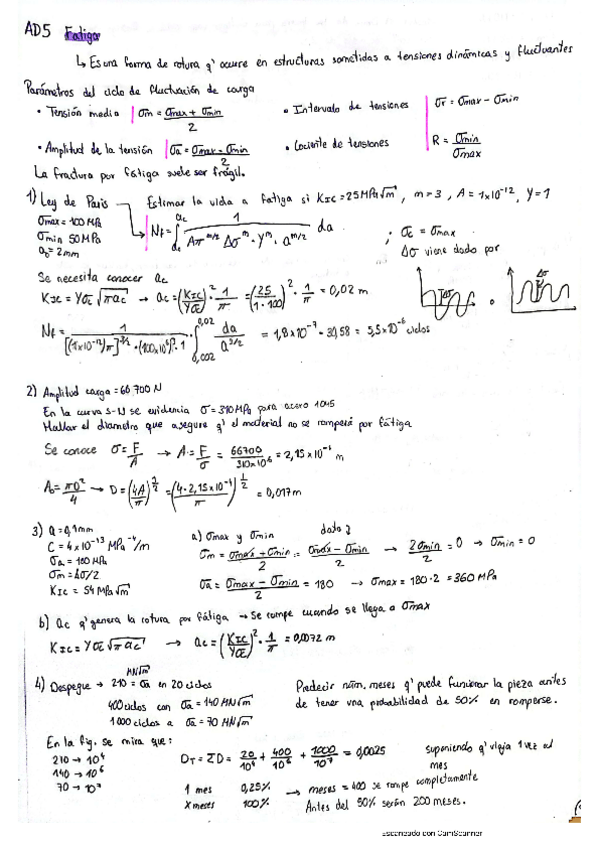 AD5 Fatiga
↳ Es una forma de rotura q' ocurre en estructuras sometidas a tensiones dinámicas y fluctuantes
Parámetros del ciclo de fluctuación de carga
• Tensión media | σm = (σmax + σmin)/2 • Intervalo de tensiones | σr = σmax - σmin
• Amplitud de la tensión | σa = (σmax - σmin)/2 • Cociente de tensiones | R = σmin/σmax
La fractura por fatiga suele ser frágil.
1) Ley de Paris → Estimar la vida a fatiga si KIC = 25 MPa√m, m = 3, A = 1×10⁻¹², Y = 1
σmax = 100 MPa
σmin 50 MPa
a₀ = 2mm
Nf = ∫ 1/(Aπ^(m/2) Δσ^m · Y^m · a^(m/2)) da ; σc = σmax
Δσ viene dado por
Δσ o Δσ
Se necesita conocer ac
KIC = Yσc√πac → ac = (KIC/Yσc)² · 1/π = (25/(1·100))² · 1/π = 0,02 m
Nf = 1/([(1×10⁻¹²)π]^(3/2) · (100×10⁶)³ · 1) · ∫_{0,002}^{0,02} da/a^(3/2) = 1,8×10⁻⁷ · 30,58 = 5,5×10⁻⁶ ciclos
2) Amplitud carga = 66 700 N
En la curva S-N se evidencia σ = 310 MPa para acero 1045
Hallar el diametro que asegure q' el material no se romperá por fátiga
Se conoce σ = F/A → A = F/σ = 66700/310×10⁶ = 2,15×10⁻⁴ m
A₀ = πD²/4 → D = (4A/π)^(1/2) = (4·2,15×10⁻⁴/π)^(1/2) = 0,017m
3) a = 0,1mm
C = 4×10⁻¹³ MPa⁻⁴/m
σa = 180 MPa
σm = Δσ/2
KIC = 54 MPa√m
a) σmax y σmin
σm = (σmax + σmin)/2 = (σmax - σmin)/2 → 2σmin/2 = 0 → σmin = 0
σa = (σmax - σmin)/2 = 180 → σmax = 180·2 = 360 MPa
b) ac q' genera la rotura por fátiga → Se rompe cuando se llega a σmax
KIC = Yσc√πac → ac = (KIC/Yσc)² · 1/π = 0,0072 m
4) Despegue → 210 = σa en 20 ciclos
MN√m
400 ciclos con σa = 140 MN√m
1000 ciclos a σa = 70 MN√m
Predecir núm. meses q' puede funcionar la pieza antes
de tener una probabilidad de 50% en romperse.
En la fig. se mira que:
210 → 10⁴
140 → 10⁶
70 → 10⁷
DT = ΣD = 20/10⁴ + 400/10⁶ + 1000/10⁷ = 0,0025
suponiendo q' viaja 1 vez al
mes
1 mes 0,25%
X meses 100%
→ meses = 400 se rompe completamente
Antes del 50% serán 200 meses.
Escaneado con CamScanner